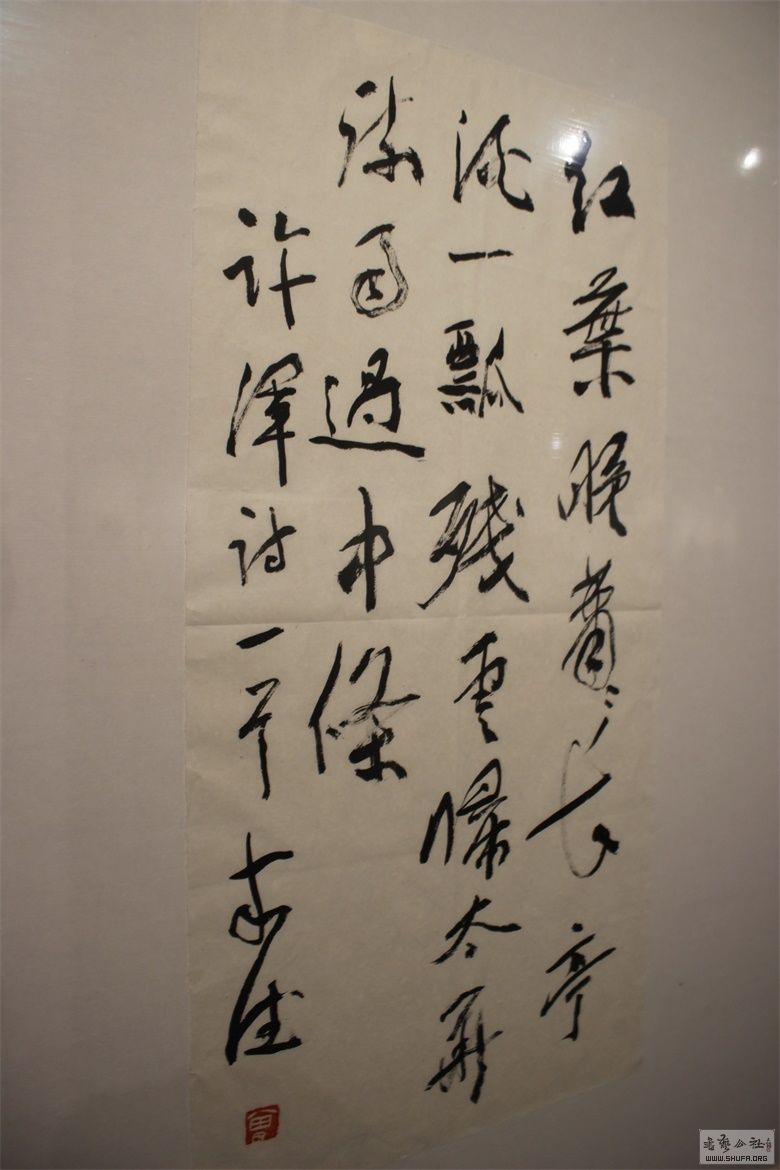 红葉晚蕭々長亭
酒一瓢殘雲歸太華
疎雨過中條
許渾詩一 来德
曾
書藝公社
WWW.SHUFA.ORG